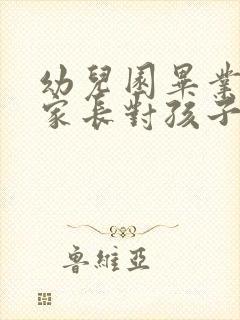 幼兒園畢業
家長對孩子
魯維亞